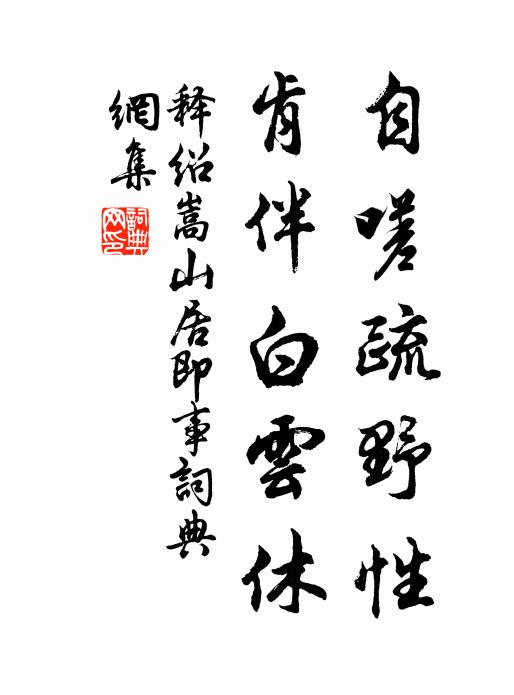 自嗟疏野性
肯伴白雲休
释紹嵩山居即事詞典
網集
詞典
网印